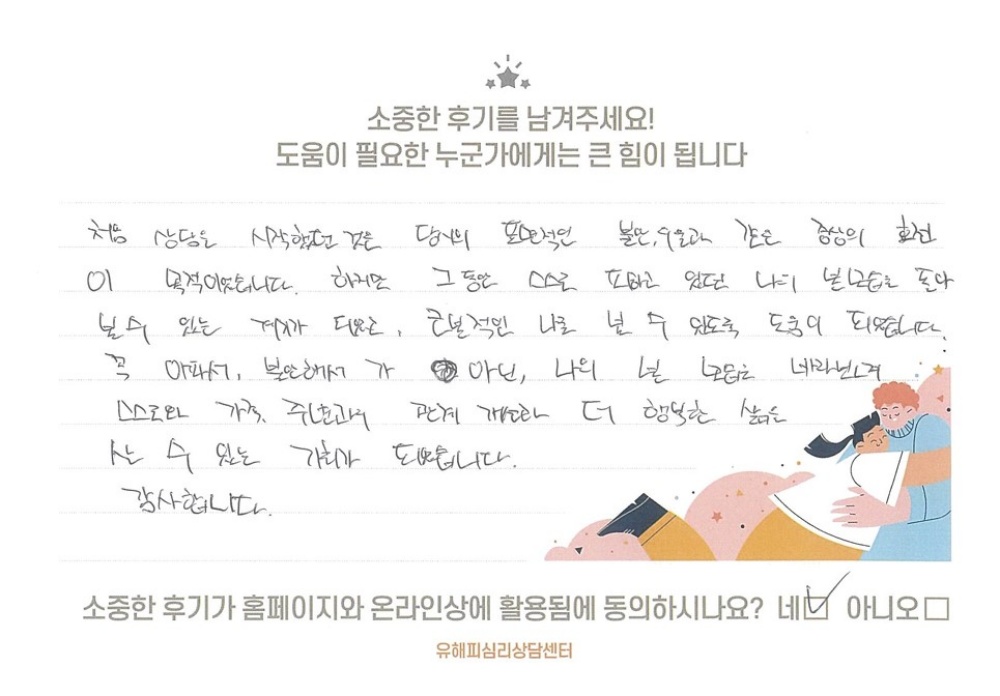 소중한 후기를 남겨주세요!
도움이 필요한 누군가에게는 큰 힘이 됩니다
처음 상담을 시작했던 것은 당시의 표면적인 불안, 우울과 같은 증상의 호전
이 목적이었습니다. 하지만 그동안 스스로 포기하고 있었던 나의 본모습을 돌아
볼 수 있는 계기가 되었고, 근본적인 나를 볼 수 있도록 도움이 되었습니다.
꼭 아파서, 불안해서 가 아닌, 나의 본 모습을 바라보며
스스로와 가족, 주변과의 관계 개선과 더 행복한 삶을
사는 수 있는 기회가 되었습니다.
감사합니다.
소중한 후기가 홈페이지와 온라인상에 활용됨에 동의하시나요? 네 아니오
유해피심리상담센터